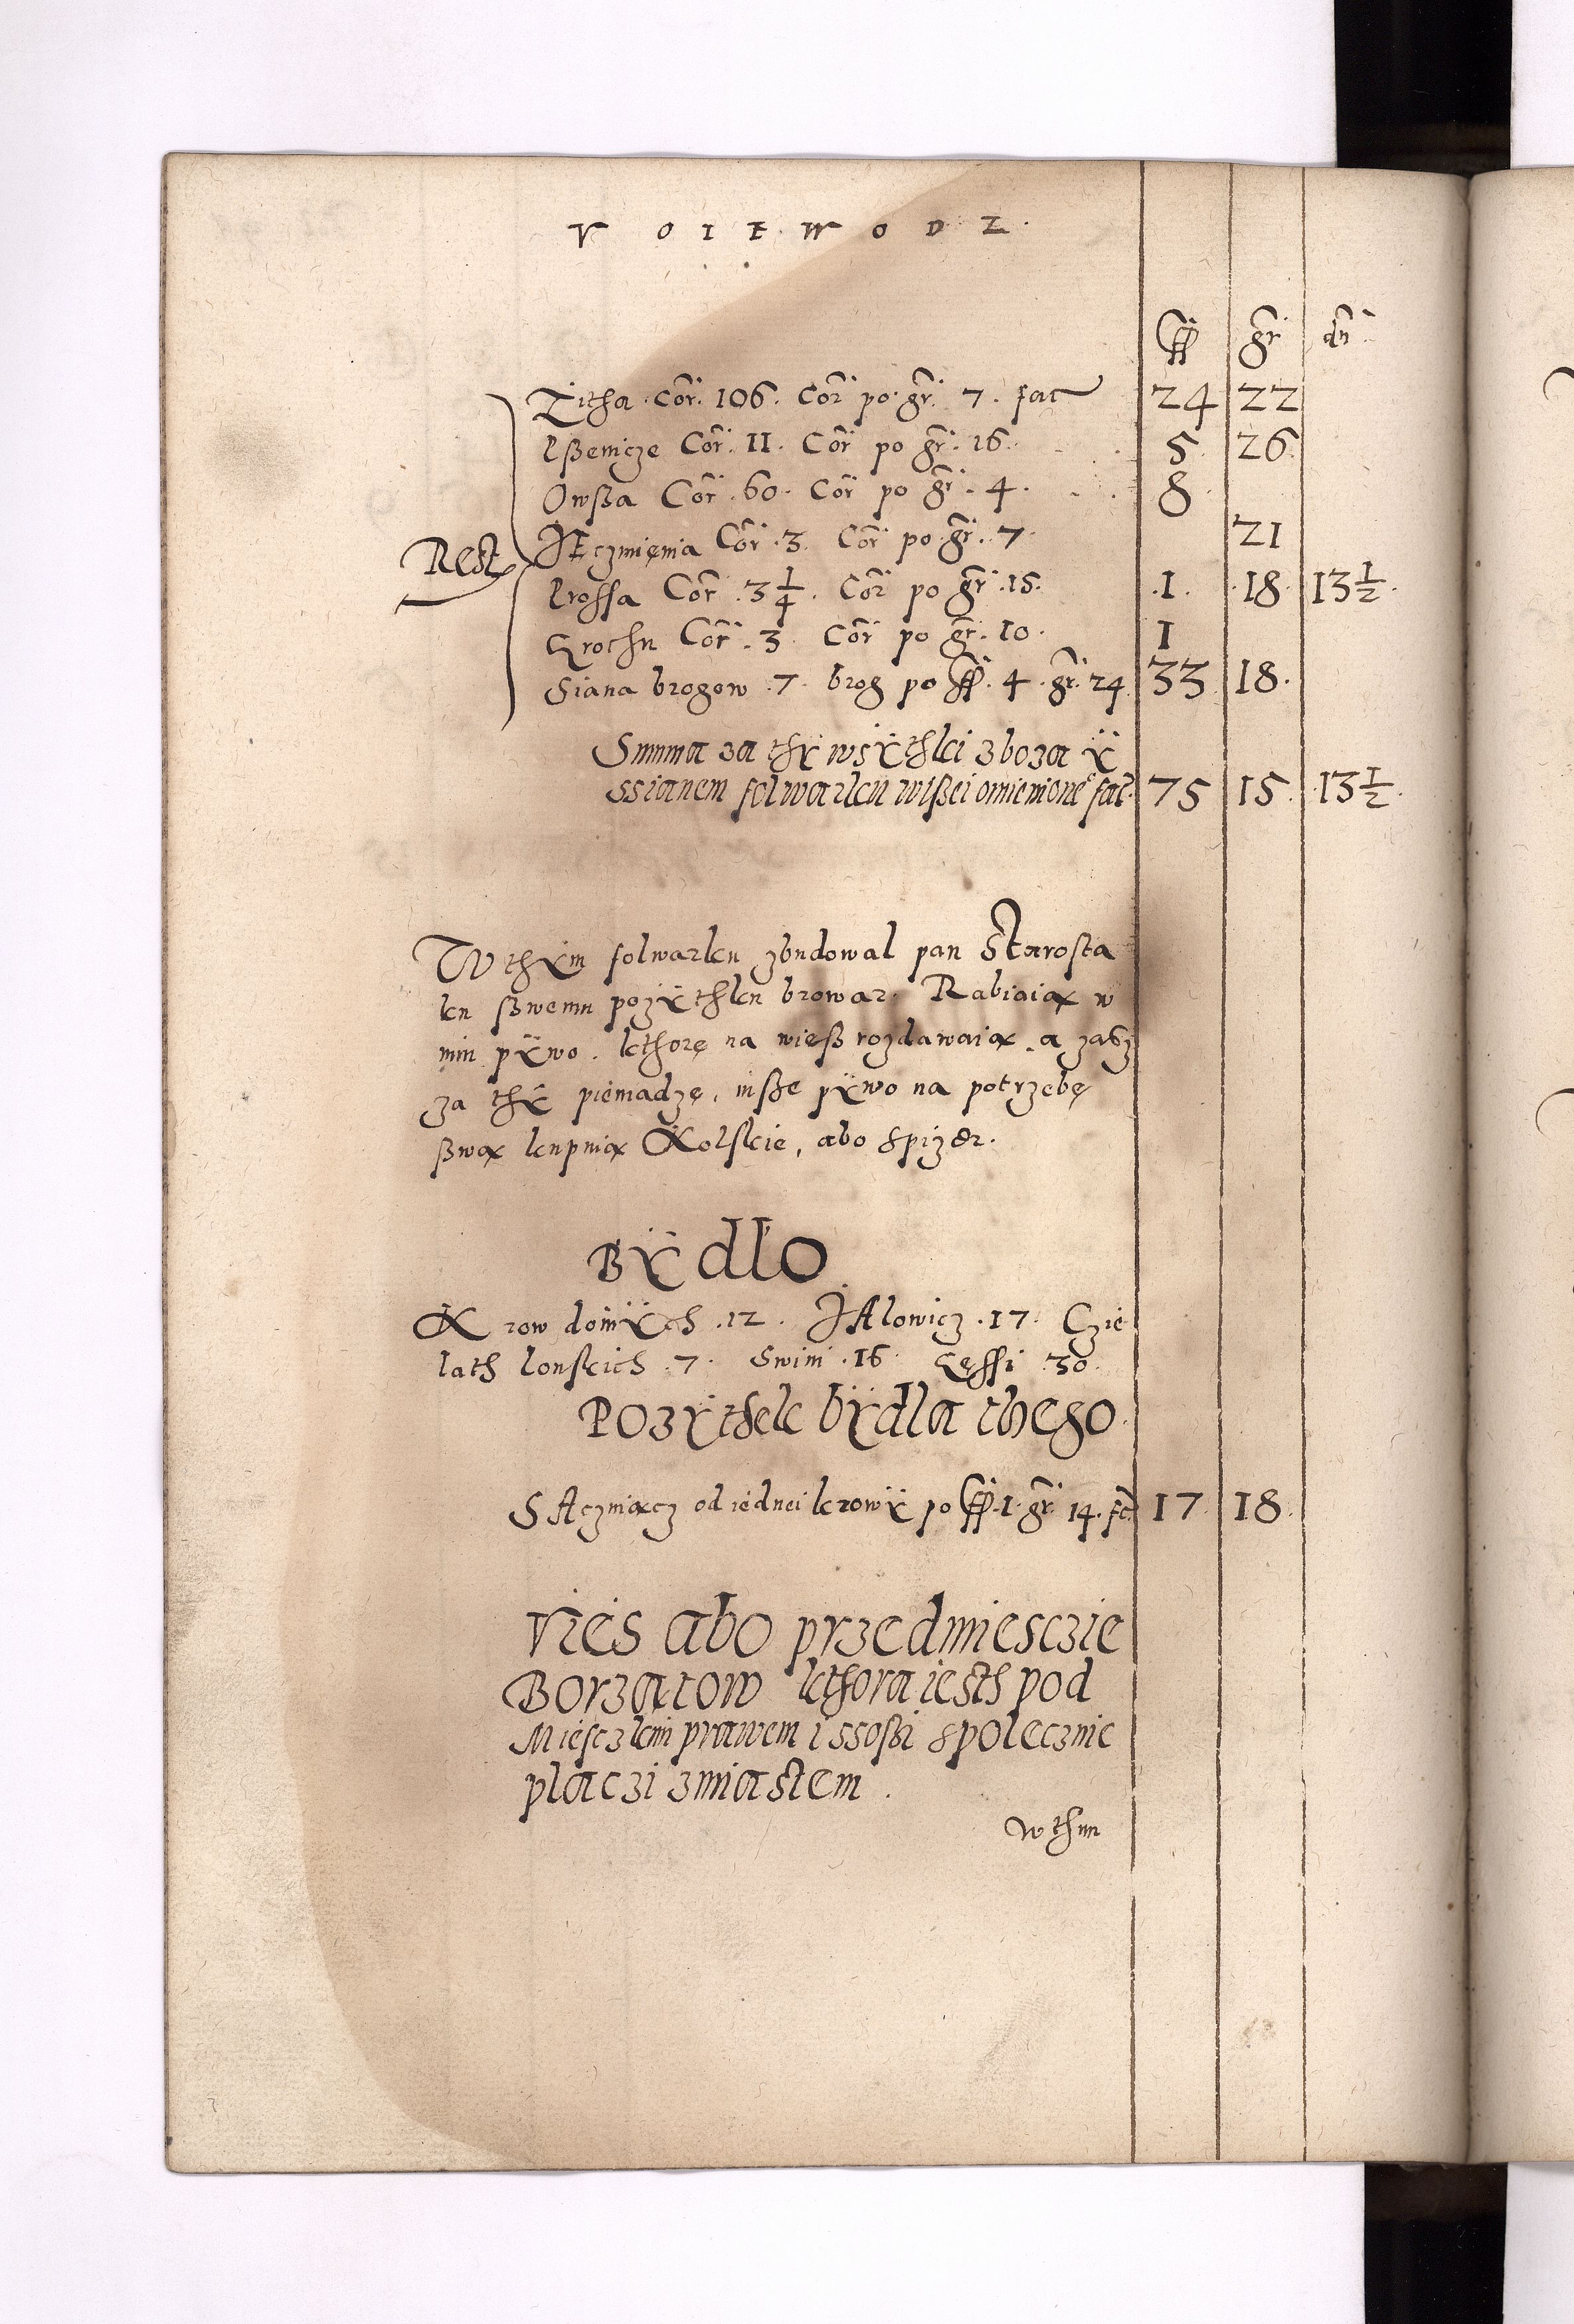 VOIEWODZ.
ff gr dn
Zitha Cor. 106. Cor po gr. 7. fac 24 22
Pßenicze Cor. 11. Cor po gr. 16. 5 26
Owßa Cor. 60. Cor po gr. 4. 8
Rest JEczmięnia Cor. 3. Cor po gr. 7. 21
Prossa Cor. 3 1/4. Cor po gr. 15. 1. 18 13 1/2.
Grochu Cor. 3. Cor po gr. 10. 1
Siana brogow 7. brog po ff. 4. gr. 24 33 18.
Summa za thÿ wsÿthki zboza ÿ
ssianem folwarku wißei omienione fac. 75 15. 13 1/2.
W thÿm folwarku zbudowal pan Starosta
ku ßwemu pozÿthku browar. Rabiaią w
nim pÿwo. kthorę na wieß rozdawaią. a zaß
za thÿ pieniadzę, inßе pÿwo na potrzebę
ßwą kupuią Kolskie, abo Spizer.
BÿdŁo
Krow doinÿch .12. JAlowicz .17. Czie
lath lonskich .7. Swini .16. Gęssi 30.
POzÿthek bÿdla thego.
SAcziuącz od iednei krowÿ po ff. 1. gr. 14. fc. 17 18.
Vieś abo przedmiesczie
Borzątow kthora iesth pod
Mieſczkim prawem i ssoßi Spolecznie
placzi zmiastem.
W thim